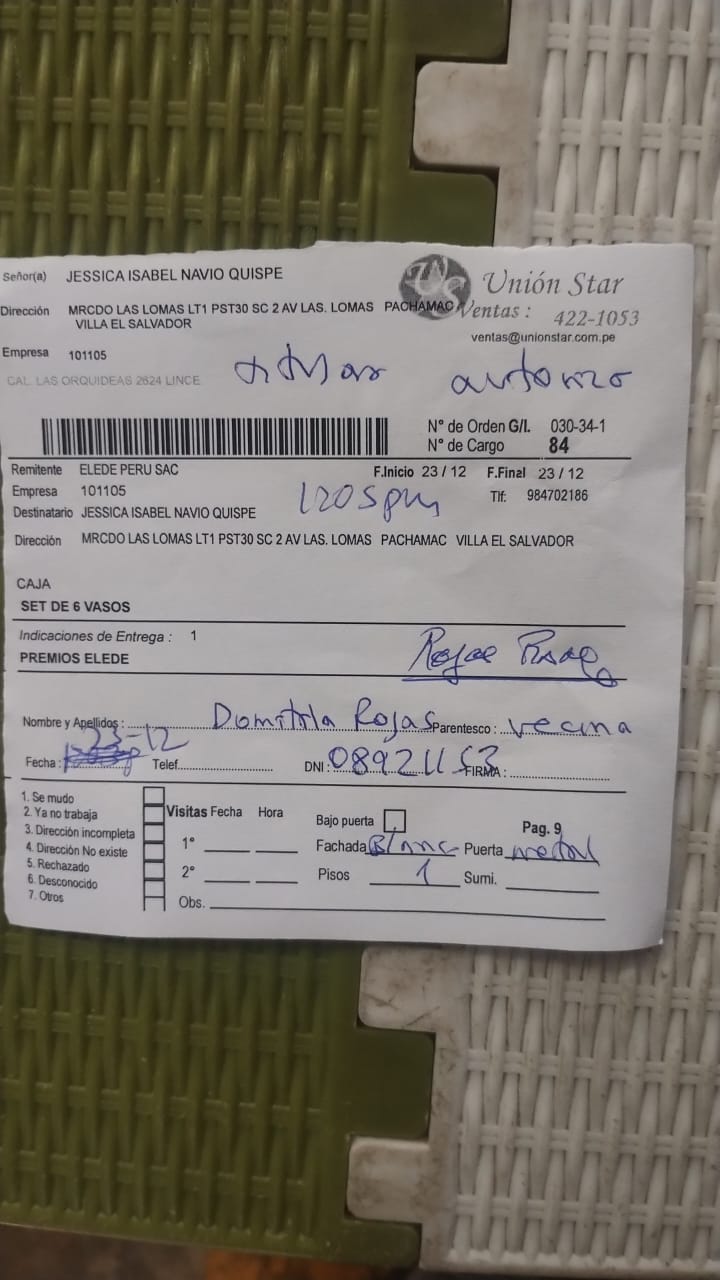 Señor(a) JESSICA ISABEL NAVIO QUISPE
Unión Star
Dirección MRCDO LAS LOMAS LT1 PST30 SC 2 AV LAS. LOMAS PACHAMAC
VILLA EL SALVADOR
Ventas : 422-1053
ventas@unionstar.com.pe
Empresa 101105
CAL. LAS ORQUIDEAS 2624 LINCE
N° de Orden G/I. 030-34-1
N° de Cargo 84
Remitente ELEDE PERU SAC F.Inicio 23 / 12 F.Final 23 / 12
Empresa 101105 Tlf: 984702186
Destinatario JESSICA ISABEL NAVIO QUISPE
Dirección MRCDO LAS LOMAS LT1 PST30 SC 2 AV LAS. LOMAS PACHAMAC VILLA EL SALVADOR
CAJA
SET DE 6 VASOS
Indicaciones de Entrega : 1
PREMIOS ELEDE
Nombre y Apellidos : Domitila Rojas Parentesco : vecina
Fecha : 23-12 Telef. DNI : 08921153 FIRMA :
1. Se mudo
2. Ya no trabaja
3. Dirección incompleta
4. Dirección No existe
5. Rechazado
6. Desconocido
7. Otros
Visitas Fecha Hora
Bajo puerta Pag. 9
1° Fachada Blanc Puerta metal
2° Pisos 1 Sumi.
Obs.